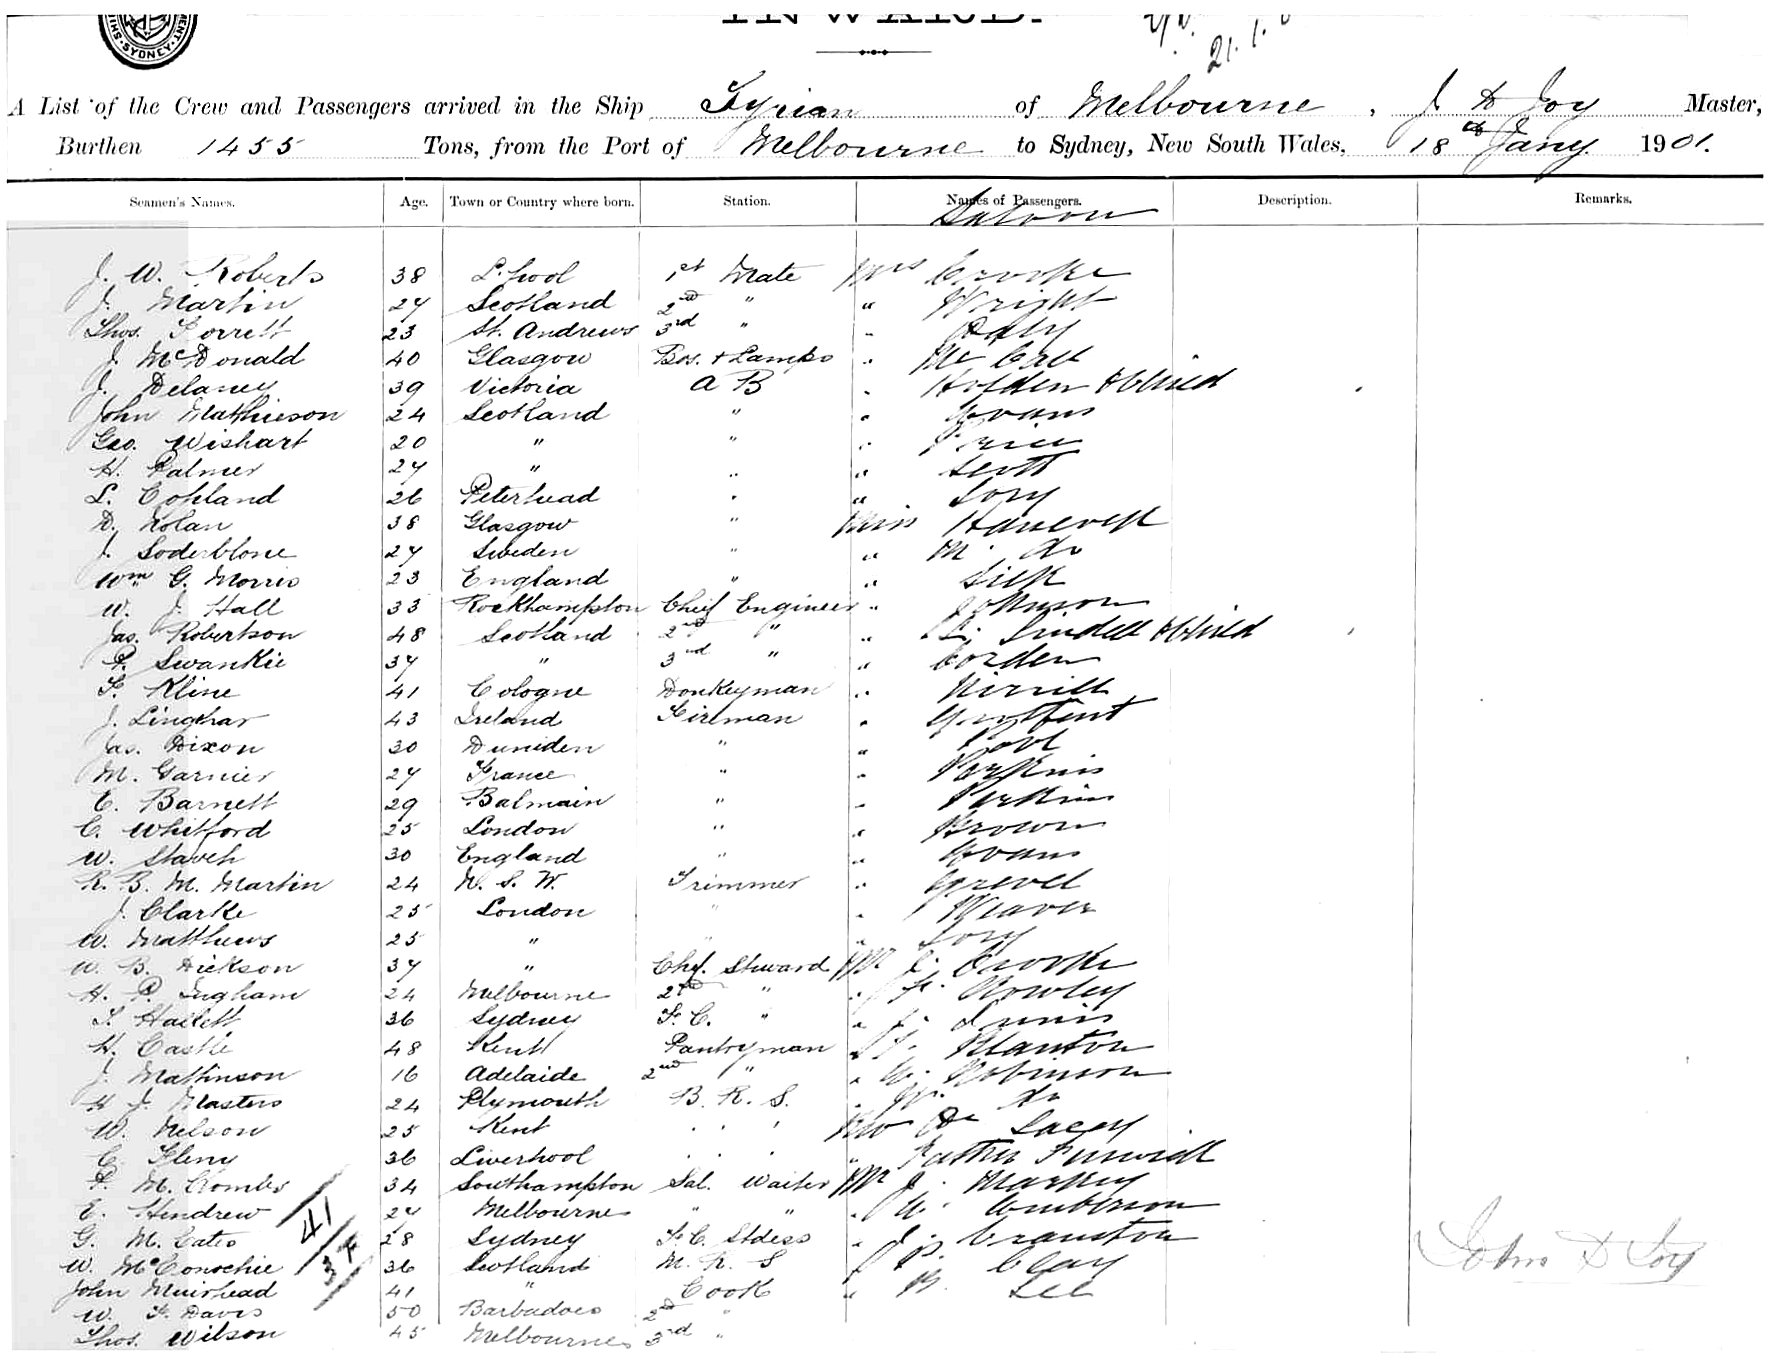 SYDNEY
INWARD.
21.1.
A List of the Crew and Passengers arrived in the Ship Tyrian of Melbourne, J D Joy Master,
Burthen 1455 Tons, from the Port of Melbourne to Sydney, New South Wales, 18th Jany 1901.
Seamen's Names. Age. Town or Country where born. Station. Names of Passengers. Description. Remarks.
Saloon
J. W. Roberts 38 L.pool 1st Mate Mrs Crooke
J. Martin 27 Scotland 2nd " " Wright
Thos. Forrett 23 St. Andrews 3rd " " Daly
J. McDonald 40 Glasgow Bos. + Lamps "
J. Delaney 39 Victoria A B " Holden & Child
John Mathieson 24 Scotland " " Evans
Geo. Wishart 20 " " " Price
H. Palmer 27 " " " Scott
L. Copland 26 Peterhead " "
D. Nolan 38 Glasgow " Miss
J. Soderblone 27 Sweden " " M. Do
Wm G. Morris 23 England " " Silk
W. J. Hall 33 Rockhampton Chief Engineer " Johnson
Jas. Robertson 48 Scotland 2nd " " & Child
P. Swankie 37 " 3rd " " Corden
F. Kline 41 Cologne Donkeyman "
J. Linghar 43 Ireland Fireman "
Jas. Dixon 30 Duniden " "
M. Garnier 27 France " " Perkins
E. Barnett 29 Balmain " " Perkins
C. Whitford 25 London " " Brown
W. Staveh 30 England " " Evans
R. B. M. Martin 24 N. S. W. Trimmer "
J. Clarke 25 London " " Weaver
W. Matthews 25 " " "
W. B. Dickson 37 " Chf. Steward Mr C. Crooke
H. P. Ingham 24 Melbourne 2nd " " Rowley
T. Haslett 36 Sydney F. C. " "
H. Castle 48 Kent Pantryman " Manton
J. Mathinson 16 Adelaide 2nd " " W. Robinson
H J. Masters 24 Plymouth B. R. S. " Do
W. Nelson 25 Kent " " " Rev Dr Lacey
C. Fleny 36 Liverpool " " " " Father
P. M. Crombs 34 Southampton Sal. Waiter Mr J. Markey
E. Hendrew 27 Melbourne " " " W.
G. M. Cates 28 Sydney F. C. Stdess " Cranston
W. McConochie 36 Scotland M. R. S " Clay
John Muirhead 41 " Cook " Lee
W. F. Davis 50 Barbadoes 2nd "
Thos. Wilson 45 Melbourne 3rd "
41
37
John D Joy